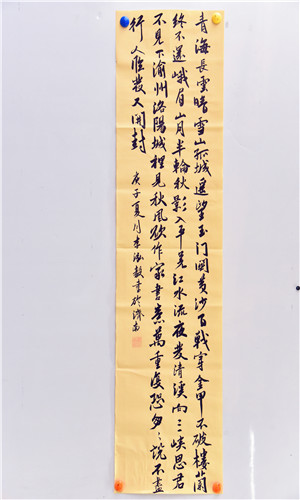 青海長雲暗雪山孤城遥望玉门関黄沙百戰穿金甲不破樓蘭
终不還峨眉山月半輪秋影入平羌江水流夜发清溪向三峡思君
不見下渝州洛陽城裡見秋風欲作家書意萬重復恐匆匆説不盡
行人臨發又開封
庚子夏月李書於濟南